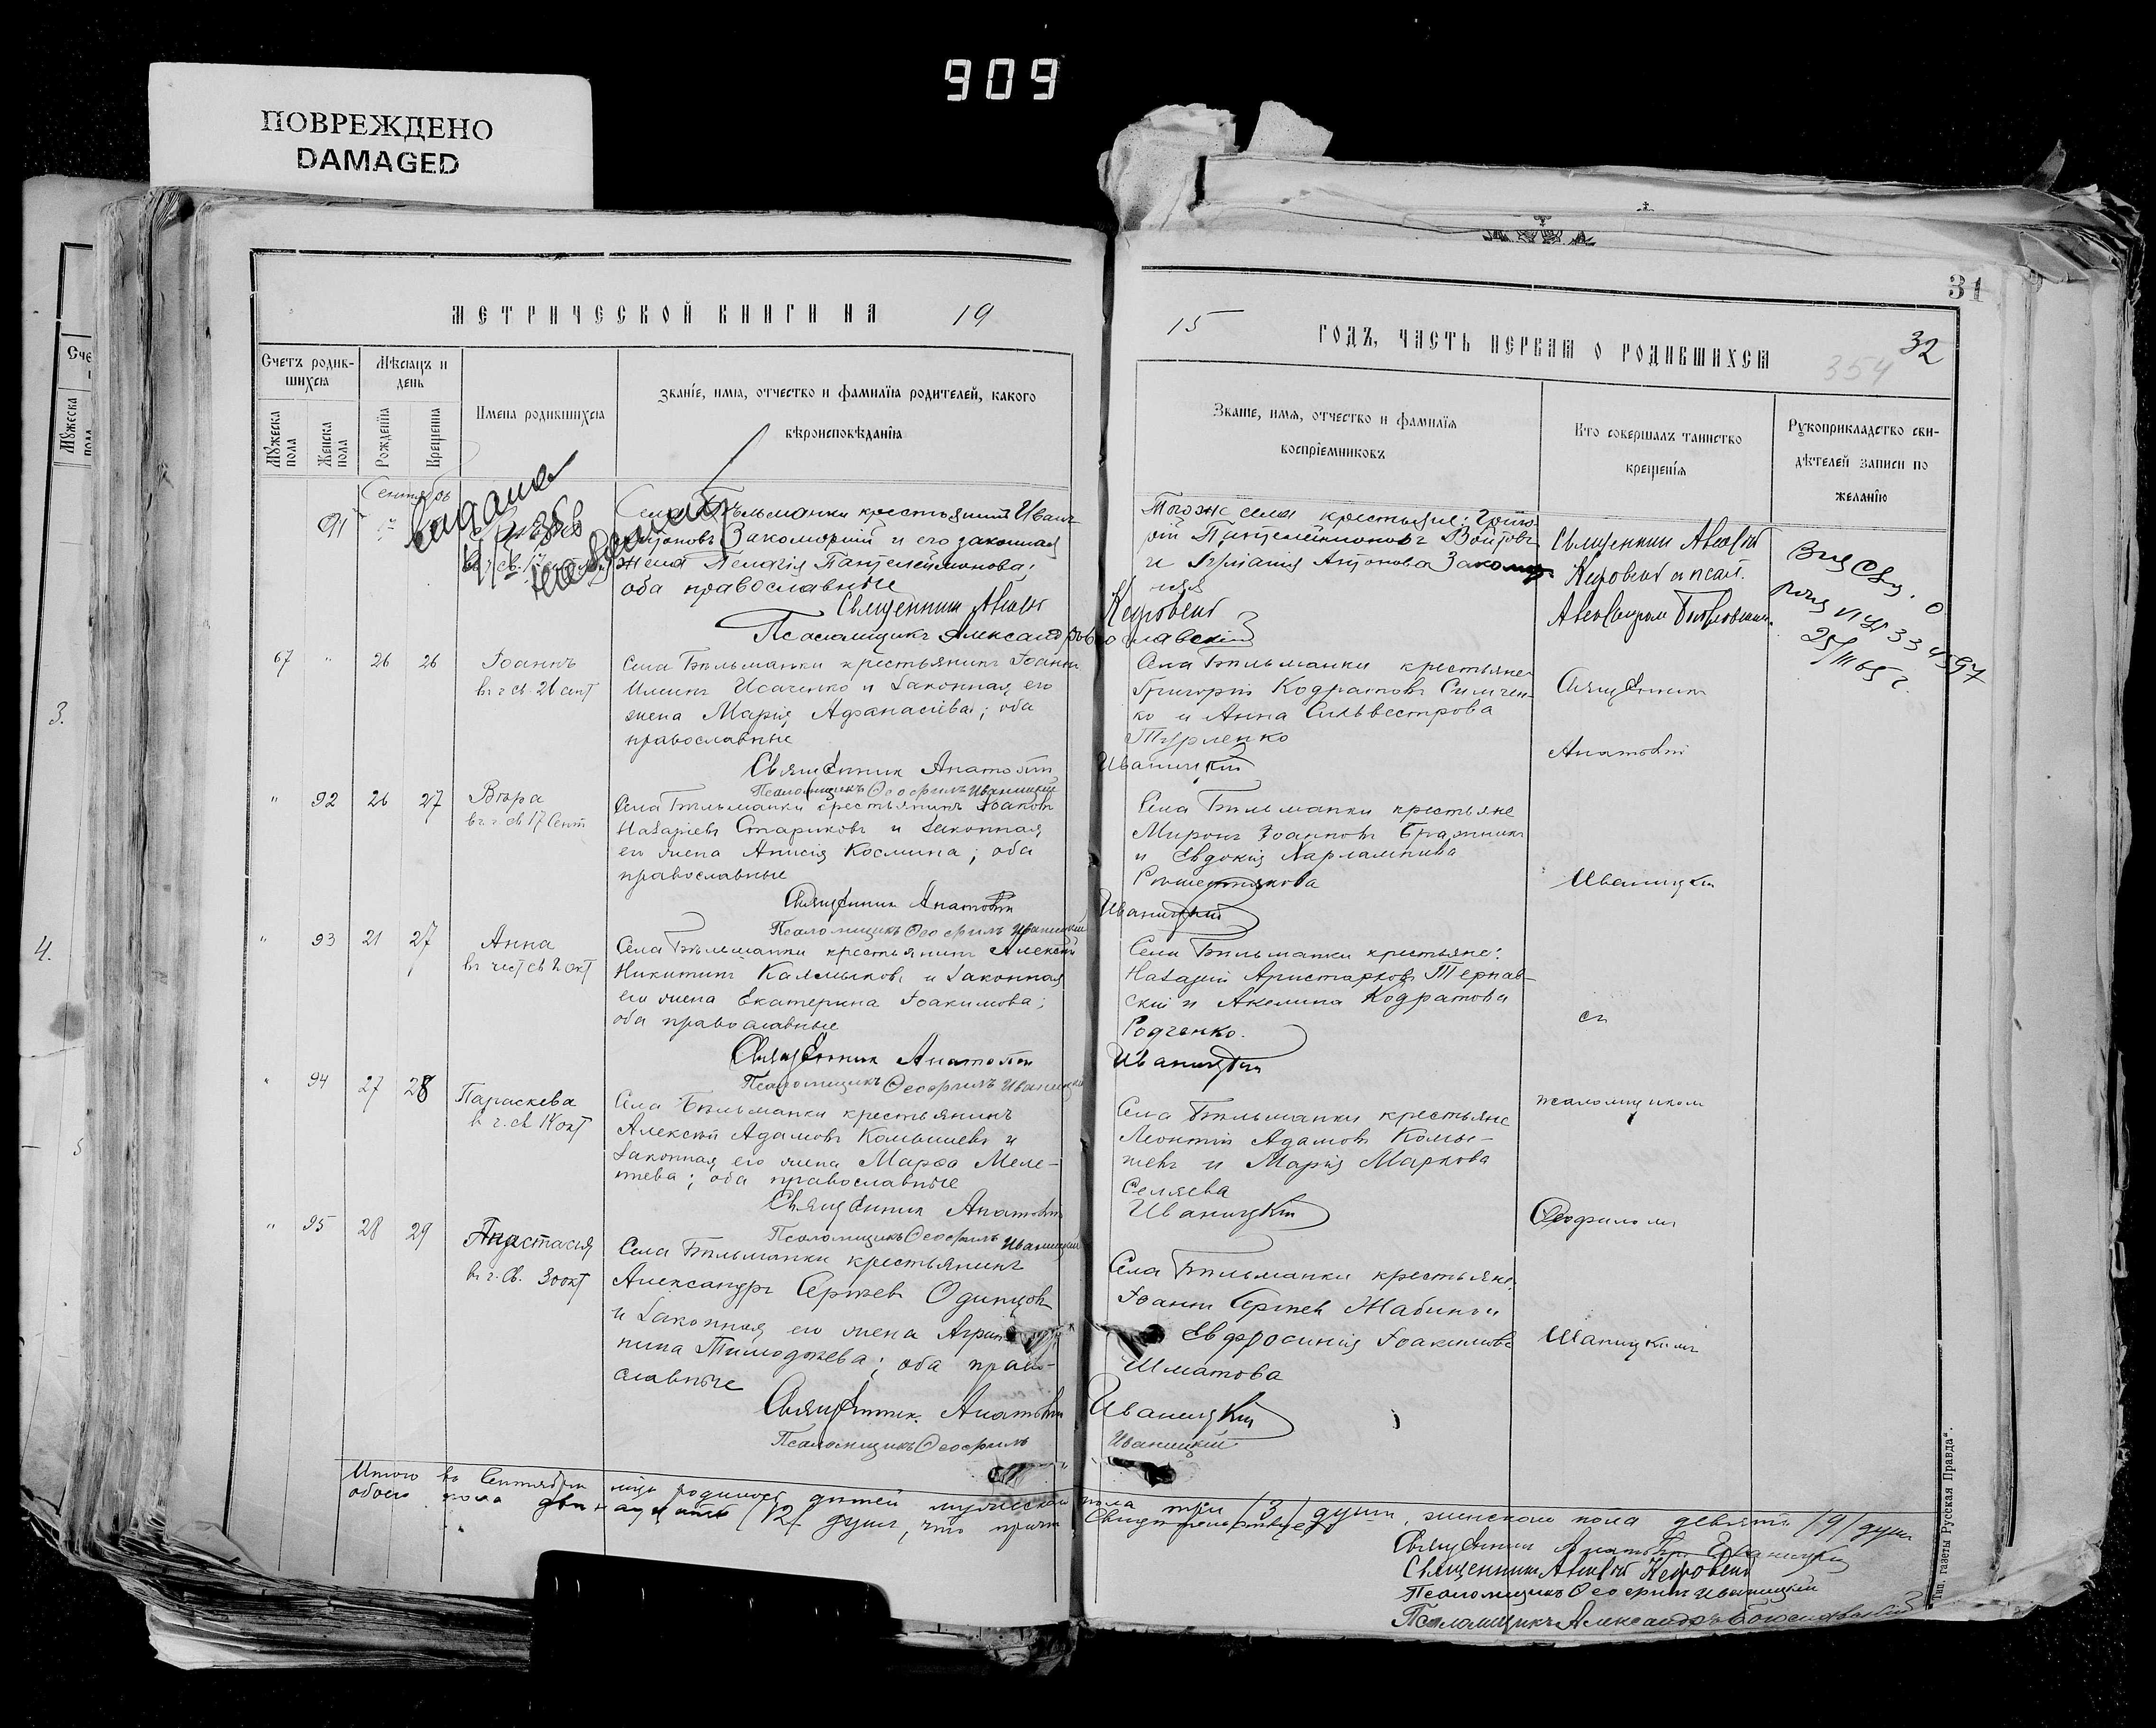 909
ПОВРЕЖДЕНО
DAMAGED
31
МЕТРИЧЕСКОЙ КНИГИ НА 19
15 ГОДЪ, ЧАСТЬ ПЕРВАЯ О РОДИВШИХСЯ
32
354
Счетъ родив-
шихся
Мѣсяцъ и
день
Мужеска
пола
Женска
пола
Рожденія
Крещенія
Имена родившихся
Званіе, имя, отчество и фамилія родителей, какого
вѣроисповѣданія
Званіе, имя, отчество и фамилія
воспріемниковъ
Кто совершалъ таинство
крещенія
Рукоприкладство сви-
дѣтелей записи по
желанію
Сентябрь
91
Села Бѣльманки крестьянинъ Иванъ
Закоморній и его законная
жена Пелагія Пантелеймонова;
оба православные
Священникъ
Псаломщикъ Александръ
Тогоже села крестьяне: Григо-
рій Пантелеймоновъ
и Антонова
Священникъ
67 " 26 26 Іоаннъ
въ ч. св. 26 сент
Села Бѣльманки крестьянинъ Іоаннъ
Исаченко и законная его
жена Марія Афанасіева; оба
православные
Священникъ Анатолій
Иваницкій
Псаломщикъ Ѳеофилъ Иваницкій
Села Бѣльманки крестьяне
Григорій Кодратовъ Симчен-
ко и Анна Сильвестрова
Турленко
Священникъ
Анатолій
" 92 26 27 Вѣра
въ ч. св. 17 Сент
Села Бѣльманки крестьянинъ Іаковъ
Назаріевъ Стариковъ и законная
его жена Анисія Космина; оба
православные
Священникъ Анатолій
Иваницкій
Псаломщикъ Ѳеофилъ Иваницкій
Села Бѣльманки крестьяне
Миронъ Іоанновъ Бражникъ
и Евдокія Харлампіева
Иваницкій
" 93 21 27 Анна
Села Бѣльманки крестьянинъ Алексѣй
Никитинъ Калмыковъ и законная
его жена Екатерина Іоакимова;
оба православные
Священникъ Анатолій
Иваницкій
Псаломщикъ Ѳеофилъ Иваницкій
Села Бѣльманки крестьяне:
Назарій Аристарховъ Тернав-
скій и Акилина Кодратова
Родченко.
съ
" 94 27 28 Параскева
въ ч. св. 14 окт
Села Бѣльманки крестьянинъ
Алексѣй Адамовъ Камышевъ и
законная его жена Марѳа Меле-
тіева; оба православные
Священникъ Анатолій
Иваницкій
Псаломщикъ Ѳеофилъ Иваницкій
Села Бѣльманки крестьяне
Леонтій Адамовъ Камы-
шевъ и Марія Маркова
Селяева
псаломщикомъ
Ѳеофиломъ
" 95 28 29 Анастасія
въ ч. св. 30 окт
Села Бѣльманки крестьянинъ
Александръ Сергѣевъ Одинцовъ
и законная его жена Агрип-
пина Тимоѳеева; оба право-
славные
Священникъ Анатолій
Иваницкій
Псаломщикъ Ѳеофилъ
Иваницкій
Села Бѣльманки крестьяне
Іоаннъ Сергѣевъ Жабинъ и
Евфросинія Іоакимова
Шматова
Иваницкимъ
Итого въ Сентябрѣ м-цѣ родилось дѣтей мужескаго пола три /3/ души, женскаго пола девять /9/ душъ
обоего пола двѣнадцать /12/ душъ, что причтъ свидѣтельствуетъ
Священникъ Анатолій Иваницкій
Священникъ
Псаломщикъ Ѳеофилъ Иваницкій
Псаломщикъ Александръ
Тип. газеты „Русская Правда“.
3.
4.